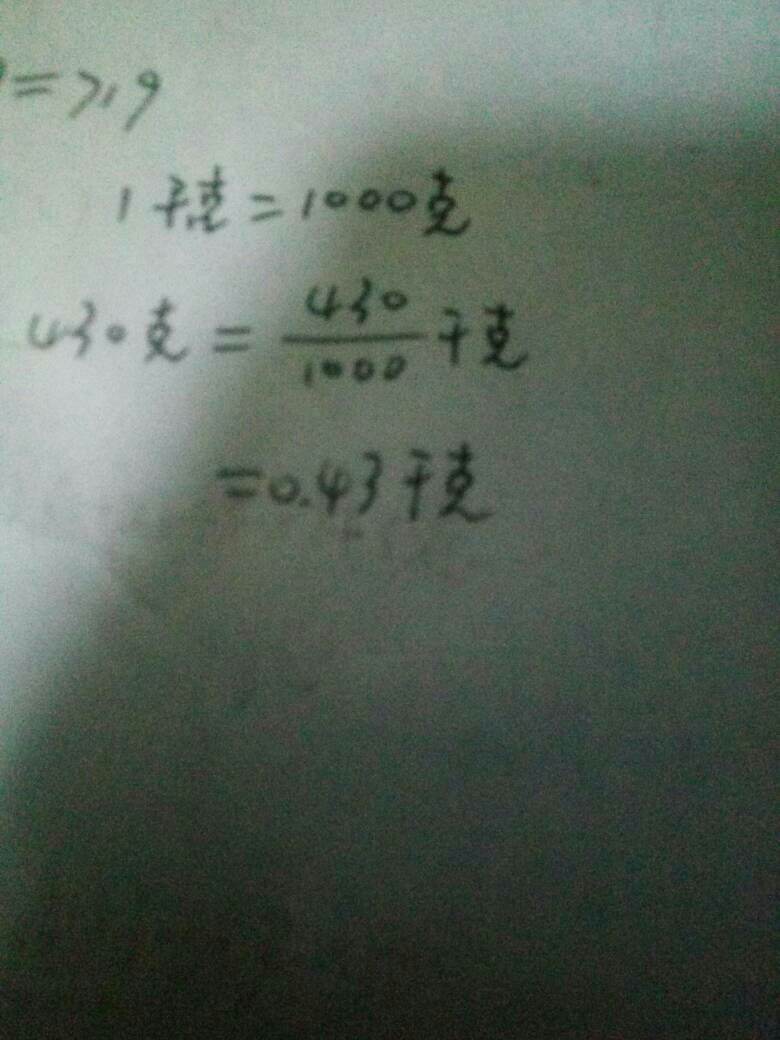 =719
1千克=1000克
430克=430/1000千克
=0.43千克